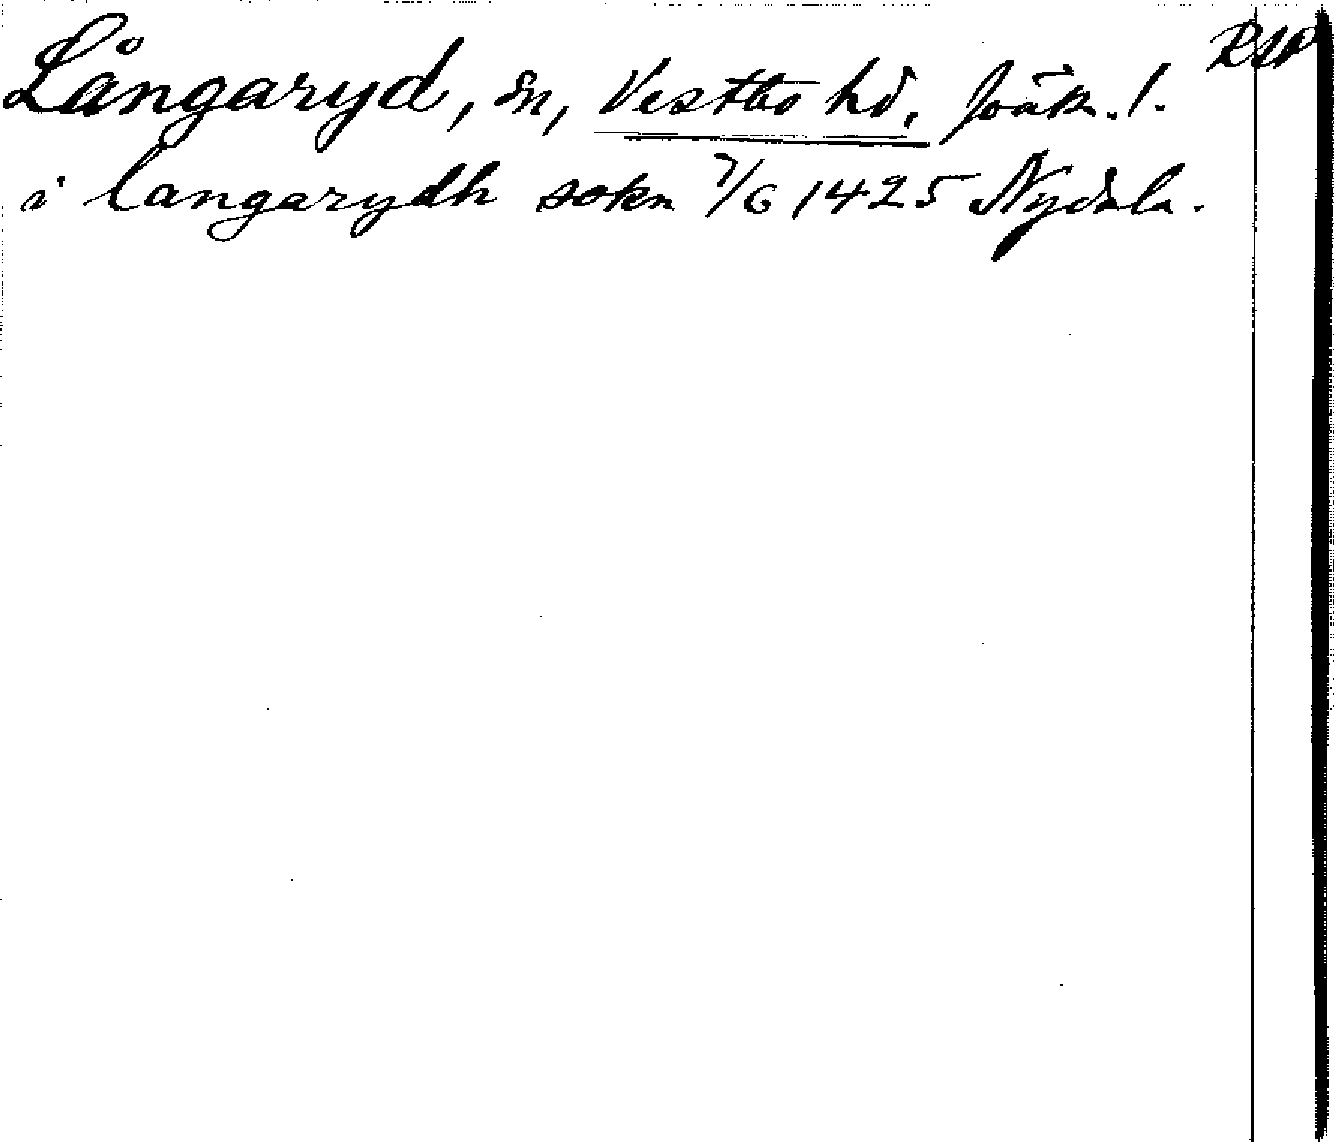 Långaryd, sn, Vestbo hd, Jönk. l.
i langarydh sokn 7/6 1425 Nydala.